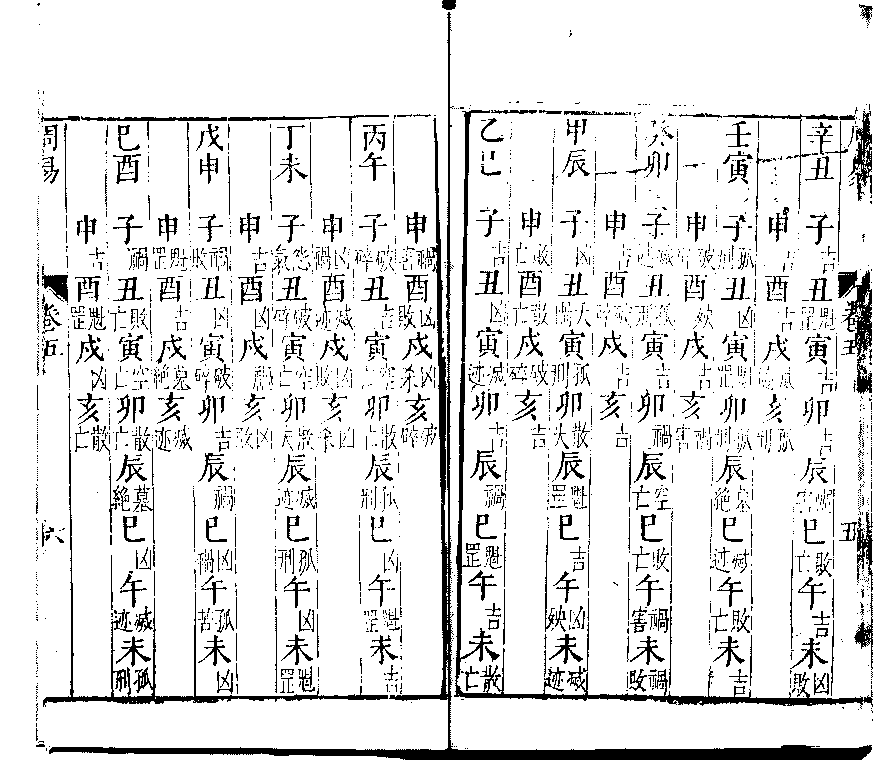 卷五 五
辛丑 子吉 丑魁罡 寅吉 卯吉 辰禍害 巳敗亡 午吉 未凶敗
申吉 酉吉 戌 亥孤刑
壬寅 子孤刑 丑凶 寅魁罡 卯孤刑 辰墓絶 巳滅迹 午敗亡 未吉
申破害 酉殃 戌吉 亥禍害
癸卯 子滅迹 丑孤刑 寅吉 卯禍 辰空亡 巳敗亡 午禍害 未禍敗
申吉 酉破碎 戌吉 亥吉
甲辰 子凶 丑大禍 寅孤刑 卯散大 辰魁罡 巳吉 午凶殃 未滅迹
申敗亡 酉敗亡 戌破碎 亥吉
乙巳 子吉 丑凶 寅滅迹 卯吉 辰禍 巳魁罡 午吉 未散亡
申禍害 酉凶敗 戌凶殺 亥破碎
丙午 子破碎 丑吉 寅空亡 卯散亡 辰孤刑 巳凶 午魁罡 未吉
申凶禍 酉滅迹 戌凶敗 亥凶殺
丁未 子怨氣 丑破碎 寅空亡 卯散大 辰滅迹 巳孤刑 午凶 未魁罡
申吉 酉凶 戌禍 亥凶敗
戊申 子禍敗 丑凶 寅破碎 卯吉 辰禍 巳凶禍 午孤苦 未凶
申魁罡 酉吉 戌墓絶 亥滅迹
己酉 子禍 丑敗亡 寅空亡 卯散亡 辰墓絶 巳凶 午滅迹 未孤刑
申吉 酉魁罡 戌凶 亥散亡
周易 卷五 六